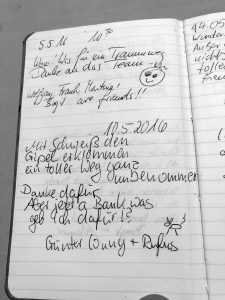 5.5.16 10³⁰
Wow! Was für ein Traumweg
Danke an das Team
Wolfgang, Frank, Martina!
Birgit are friends!!
10.5.2016
Mit Schweiß den
Gipel erklommen
ein toller Weg ganz
unbenommen
Danke dafür
Aber jetzt a Bank was
geb ich dafür!?
Günter Conny + Rufus
14.05
Wunder
Außer
nicht
toller
freu